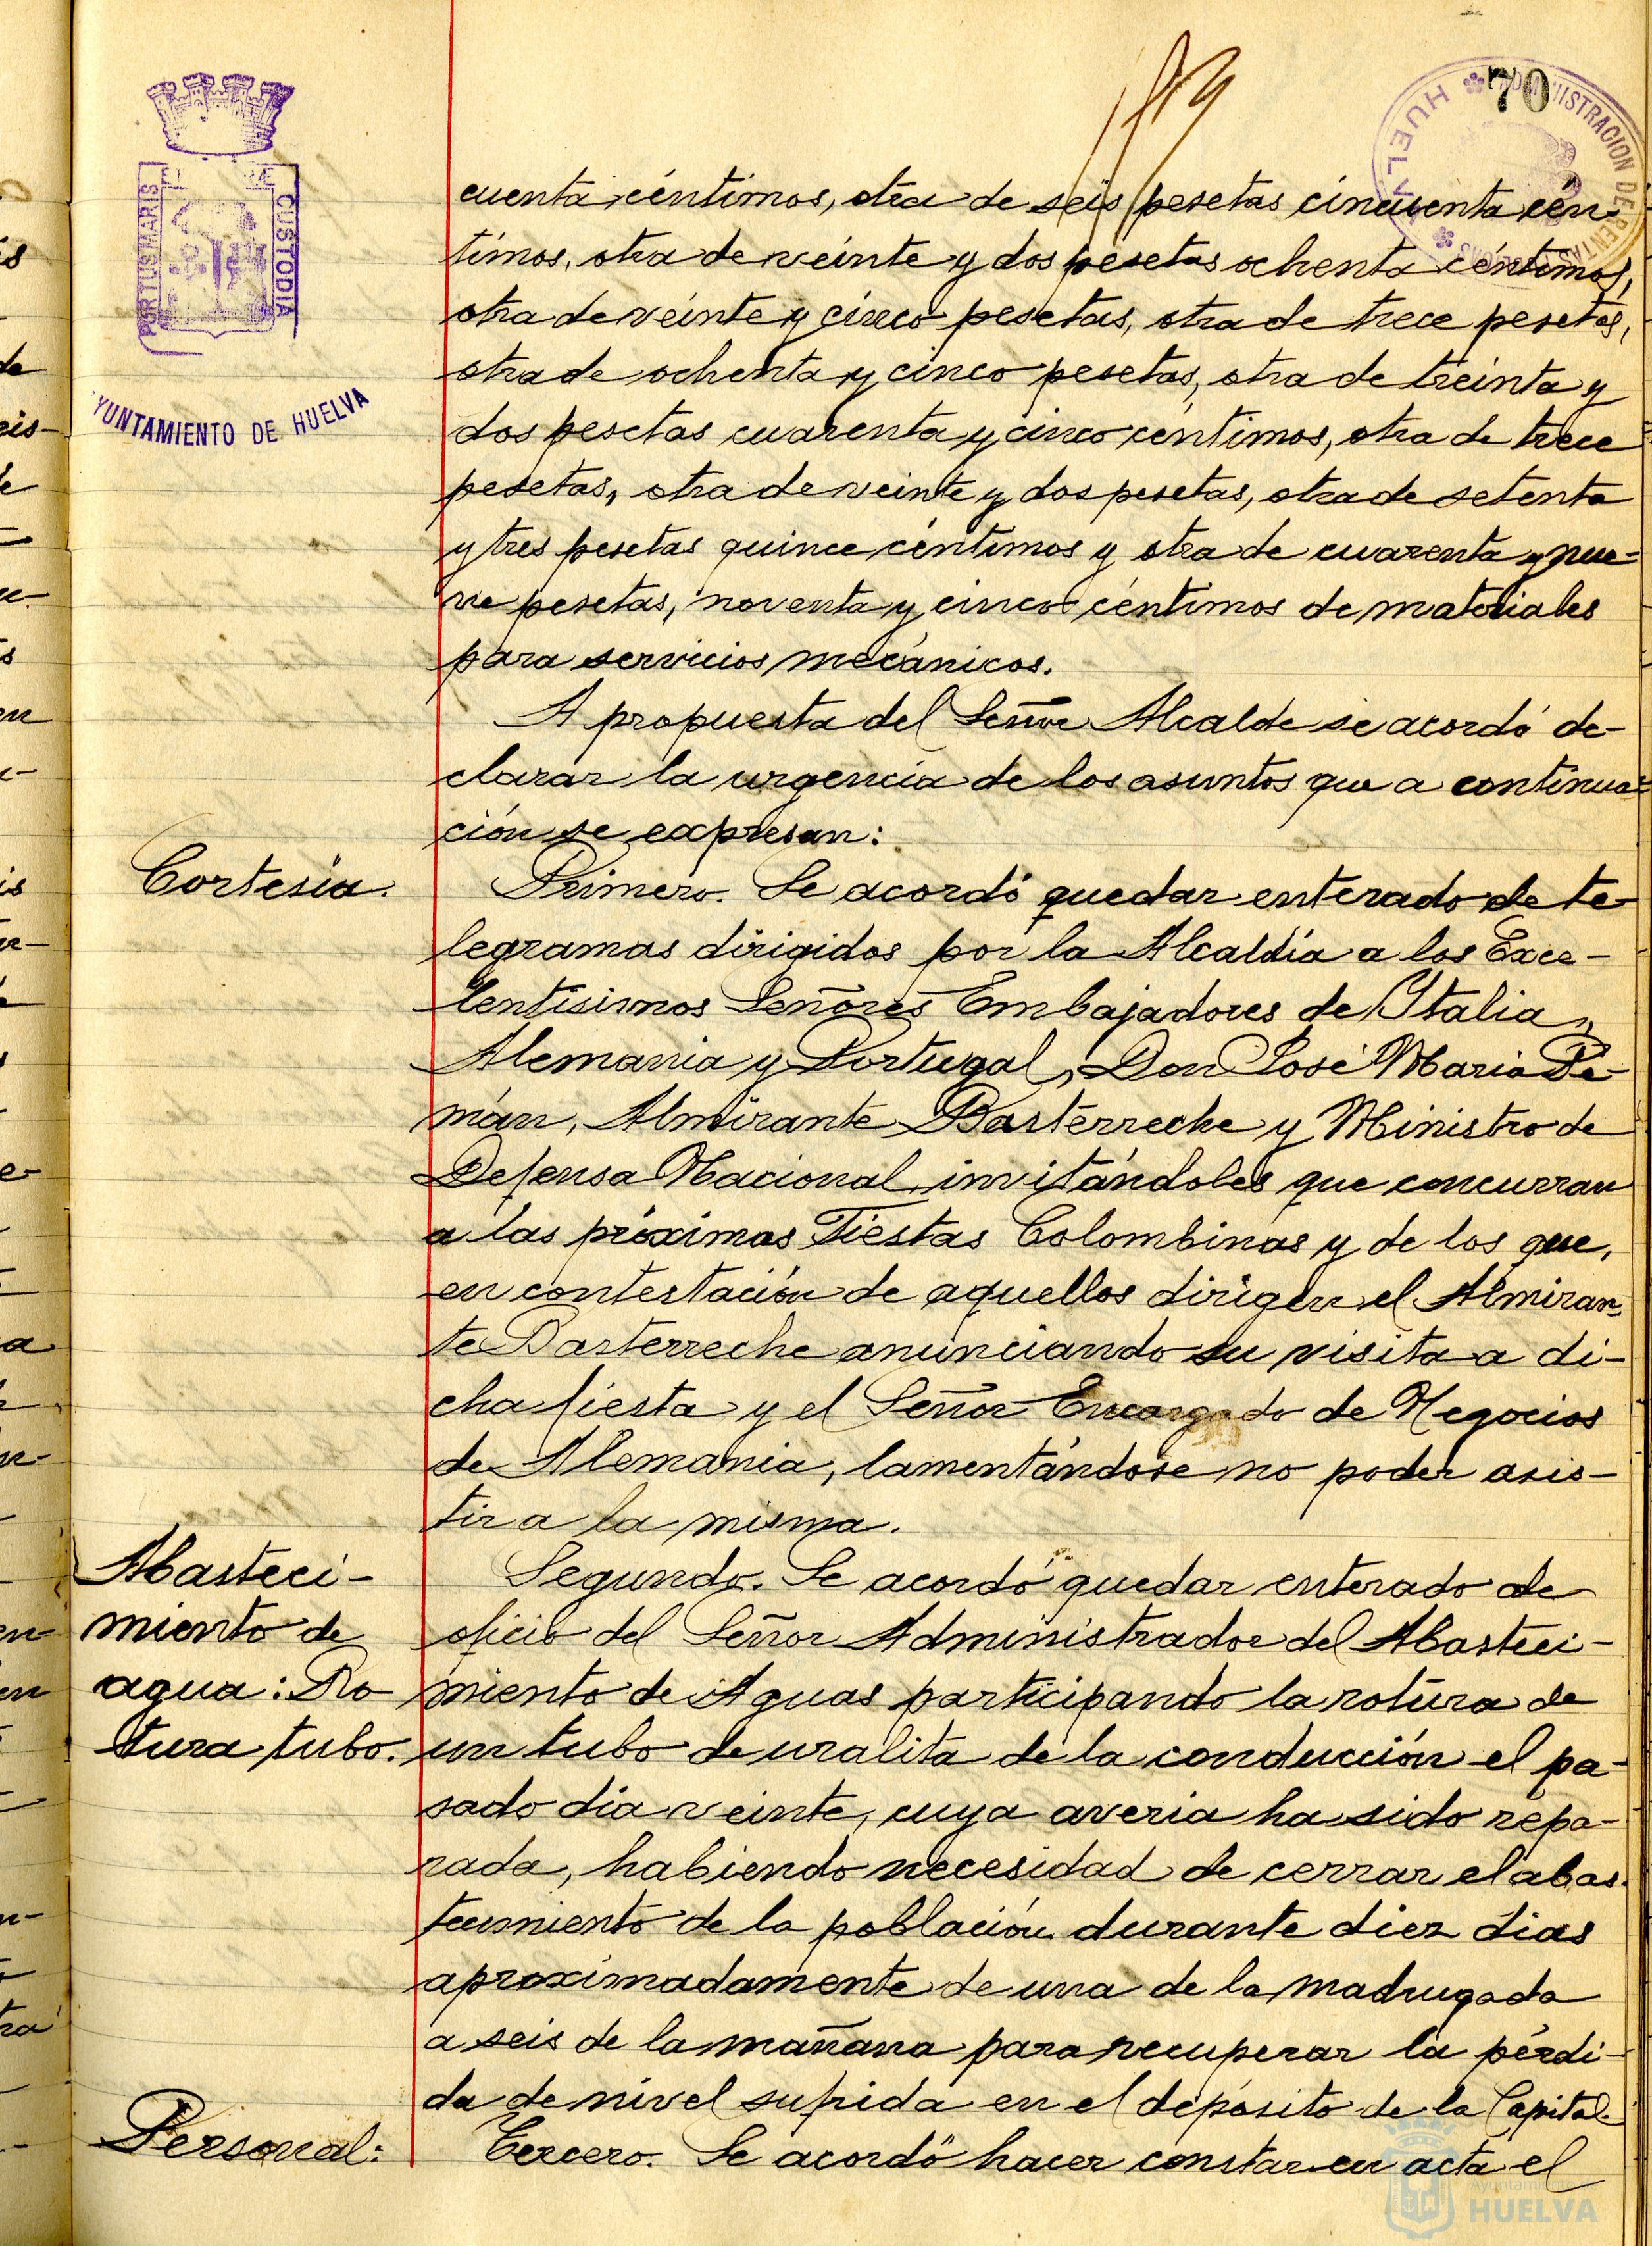 70
PORTUS MARIS
CUSTODIA
AYUNTAMIENTO DE HUELVA
ADMINISTRACION DE RENTAS
HUELVA
cuenta céntimos, otra de seis pesetas cincuenta cén-
timos, otra de veinte y dos pesetas ochenta céntimos,
otra de veinte y cinco pesetas, otra de trece pesetas,
otra de ochenta y cinco pesetas, otra de treinta y
dos pesetas cuarenta y cinco céntimos, otra de trece
pesetas, otra de veinte y dos pesetas, otra de setenta
y tres pesetas quince céntimos y otra de cuarenta y nue-
ve pesetas, noventa y cinco céntimos de materiales
para servicios mecánicos.
A propuesta del Señor Alcalde se acordó de-
clarar la urgencia de los asuntos que a continua-
ción se expresan:
Cortesia.
Primero. Se acordó quedar enterado de te-
legramas dirigidos por la Alcaldía a los Exce-
lentísimos Señores Embajadores de Italia,
Alemania y Portugal, Don José Maria Pe-
mán, Almirante Bastérreche y Ministro de
Defensa Nacional, invitándoles que concurran
a las próximas Fiestas Colombinas y de los que,
en contestación de aquellos dirigen el Almiran-
te Basterreche anunciando su visita a di-
cha fiesta y el Señor Encargado de Negocios
de Alemania, lamentándose no poder asis-
tir a la misma.
Abasteci-
miento de
agua: Ro
tura tubo.
Segundo. Se acordó quedar enterado de
oficio del Señor Administrador del Abasteci-
miento de Aguas participando la rotura de
un tubo de uralita de la conducción el pa-
sado día veinte, cuya averia ha sido repa-
rada, habiendo necesidad de cerrar el abas-
tecimiento de la población durante diez dias
aproximadamente de una de la madrugada
a seis de la mañana para recuperar la pérdi-
da de nivel sufrida en el depósito de la Capital.
Personal:
Tercero. Se acordó hacer constar en acta el
Ayuntamiento de
HUELVA